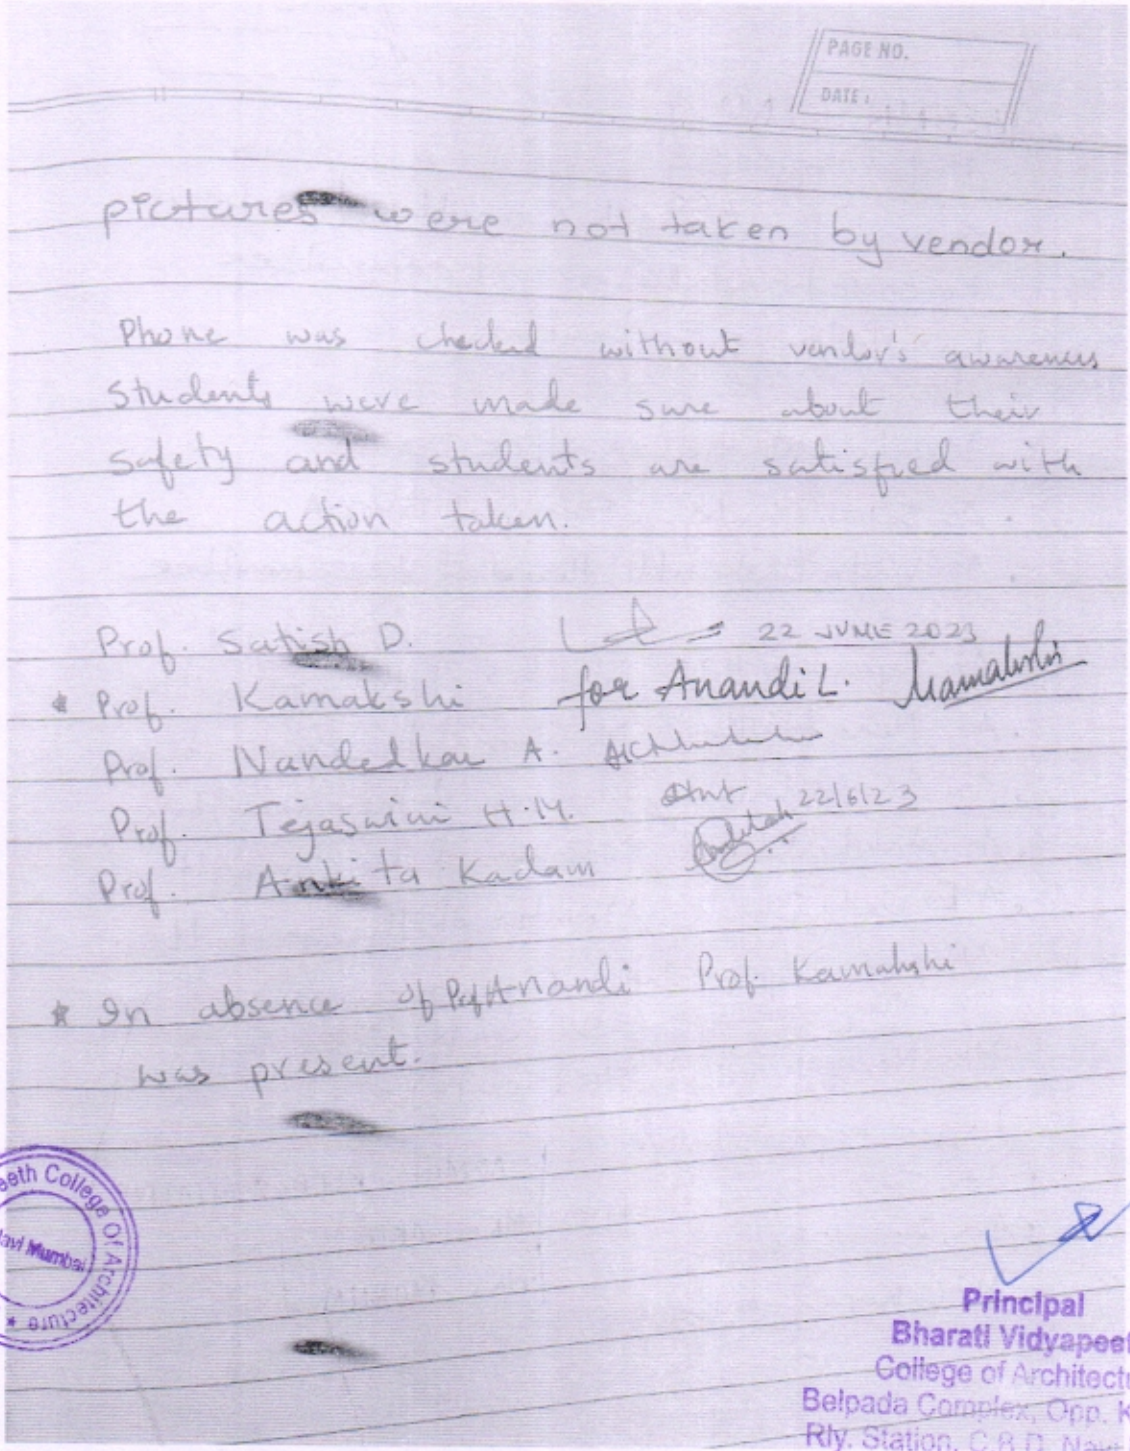 PAGE NO.
DATE :
pictures were not taken by vendor.
Phone was checked without vendor's awareness
students were made sure about their
safety and students are satisfied with
the action taken.
Prof. Satish D. 22 JUNE 2023
* Prof. Kamakshi for Anandi L. Kamakshi
Prof. Nandedkar A.
Prof. Tejaswini H.M. 22/6/23
Prof. Ankita Kadam
* In absence of Prof Anandi Prof. Kamakshi
was present.
eeth College Of Architecture *
avi Mumbai
Principal
Bharati Vidyapeet
College of Architectu
Belpada Complex, Opp. K
Rly. Station, C.B.D. Navi